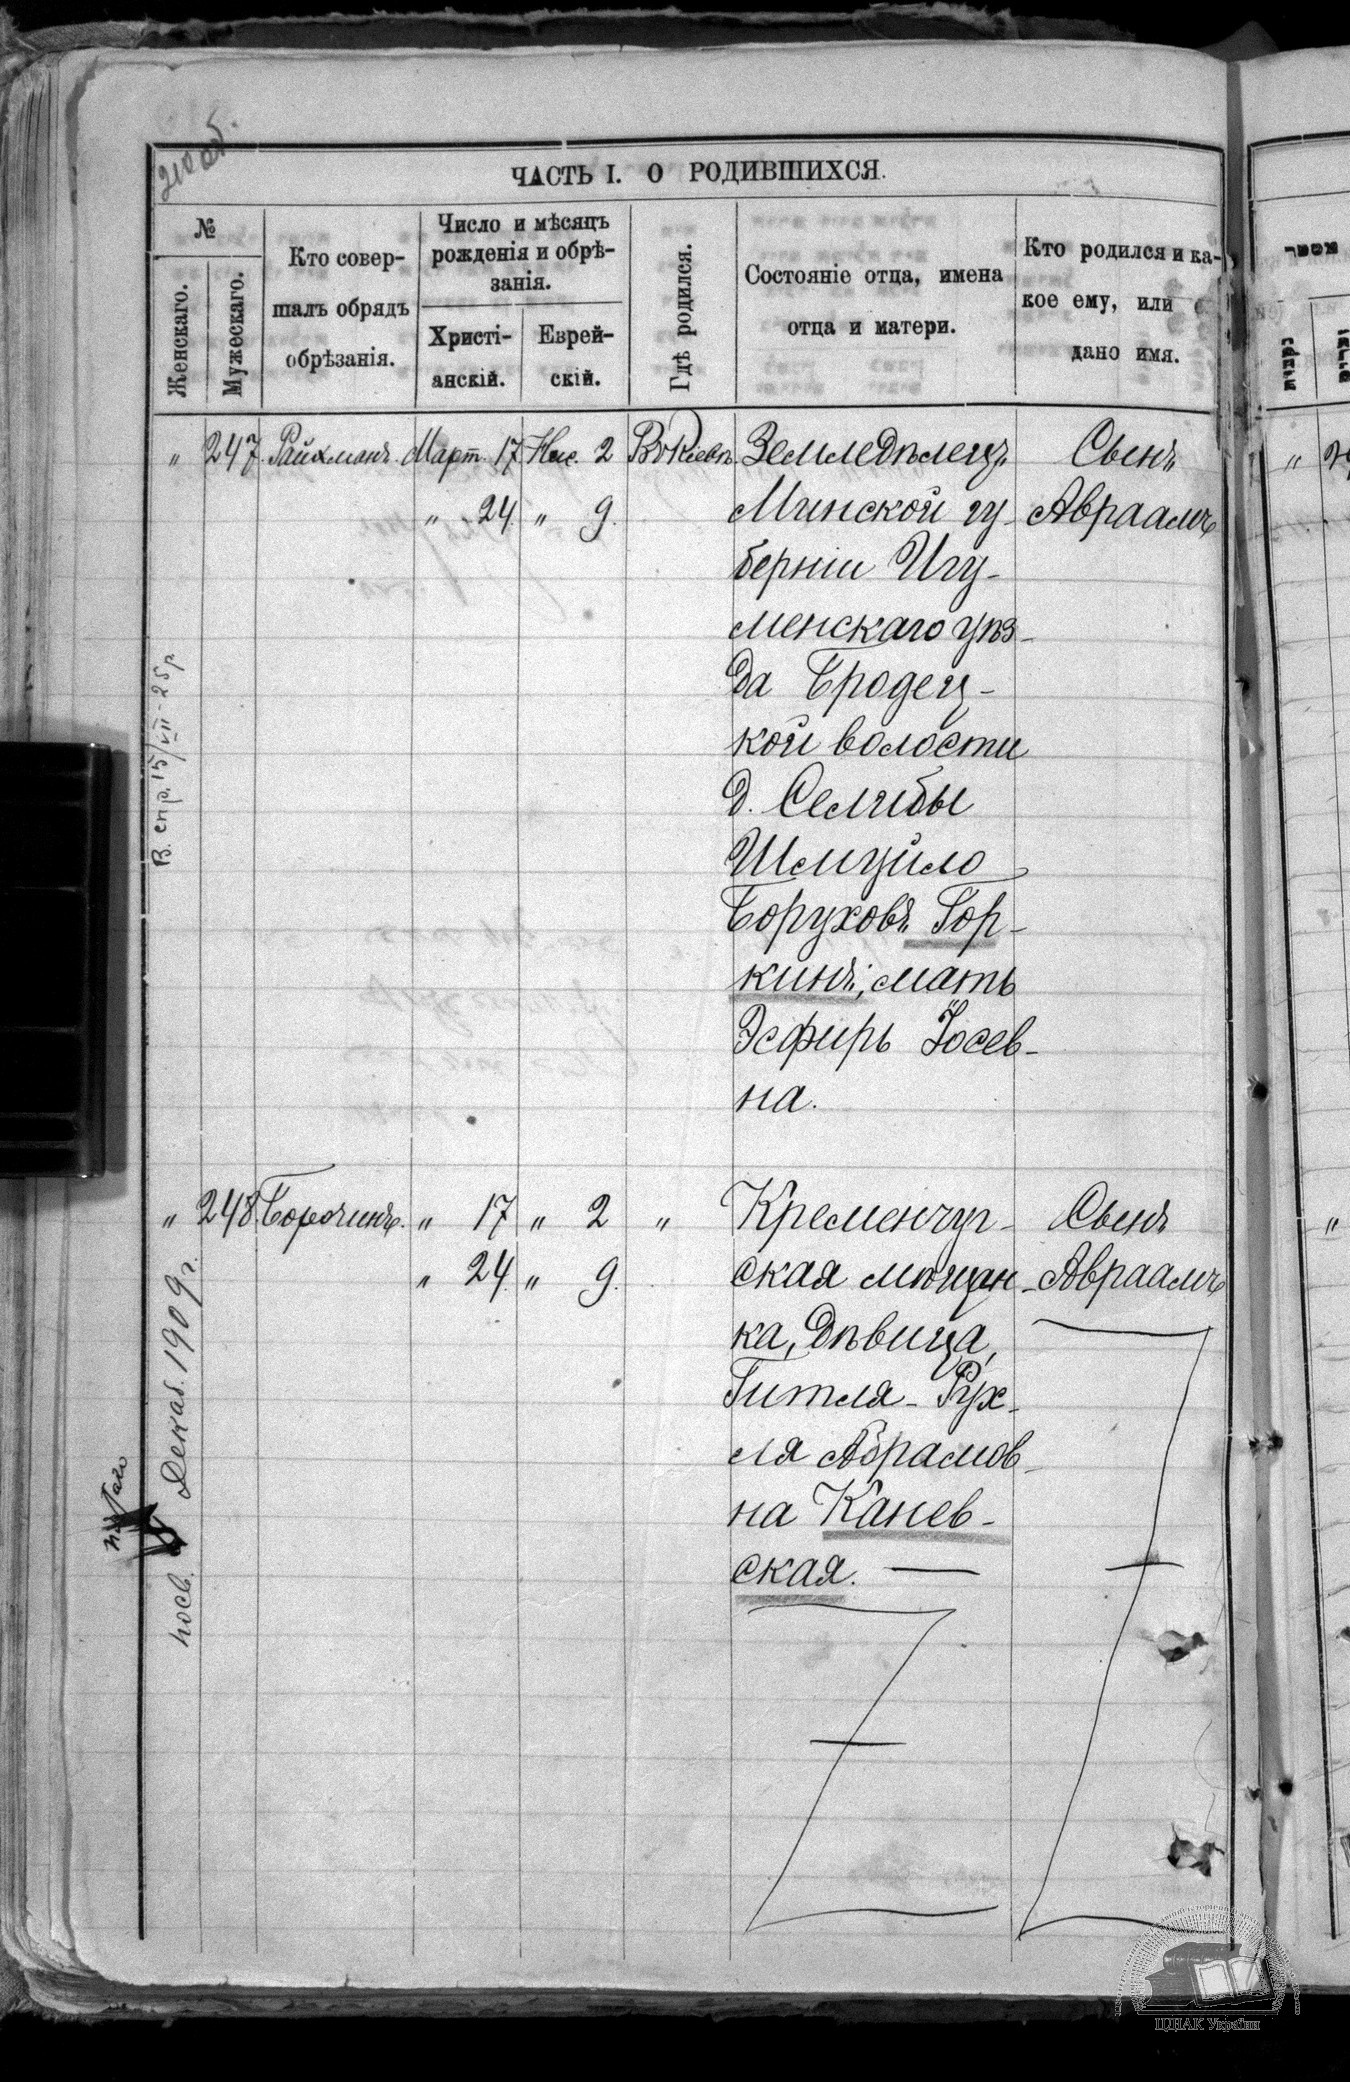 210 об.
ЧАСТЬ I. О РОДИВШИХСЯ.
№
Женскаго.
Мужескаго.
Кто совер-
шалъ обрядъ
обрѣзанія.
Число и мѣсяцъ
рожденія и обрѣ-
занія.
Христі-
анскій.
Еврей-
скій.
Гдѣ родился.
Состояніе отца, имена
отца и матери.
Кто родился и ка-
кое ему, или е
дано имя.
" 247. Райхманъ. Март. 17. Нис. 2 Въ Кіевѣ. Земледѣлецъ Сынъ
" 24. " 9. Минской гу- Авраамъ
берніи Игу-
менскаго уѣз-
да Бродец-
кой волости
д. Селибы
Шмуйло
Боруховъ Гор-
кинъ, мать
Эсфирь Іосев-
на.
" 248. Борочинъ. " 17 " 2 " Кременчуг- Сынъ
" 24. " 9. ская мѣщан- Авраамъ
ка, дѣвица,
Гитля-Рух-
ля Абрамов-
на Канев-
ская.
В. спр. 15/VII-25р.
посв. Декаб. 1909 г.
пятаго
ЦДІАК України